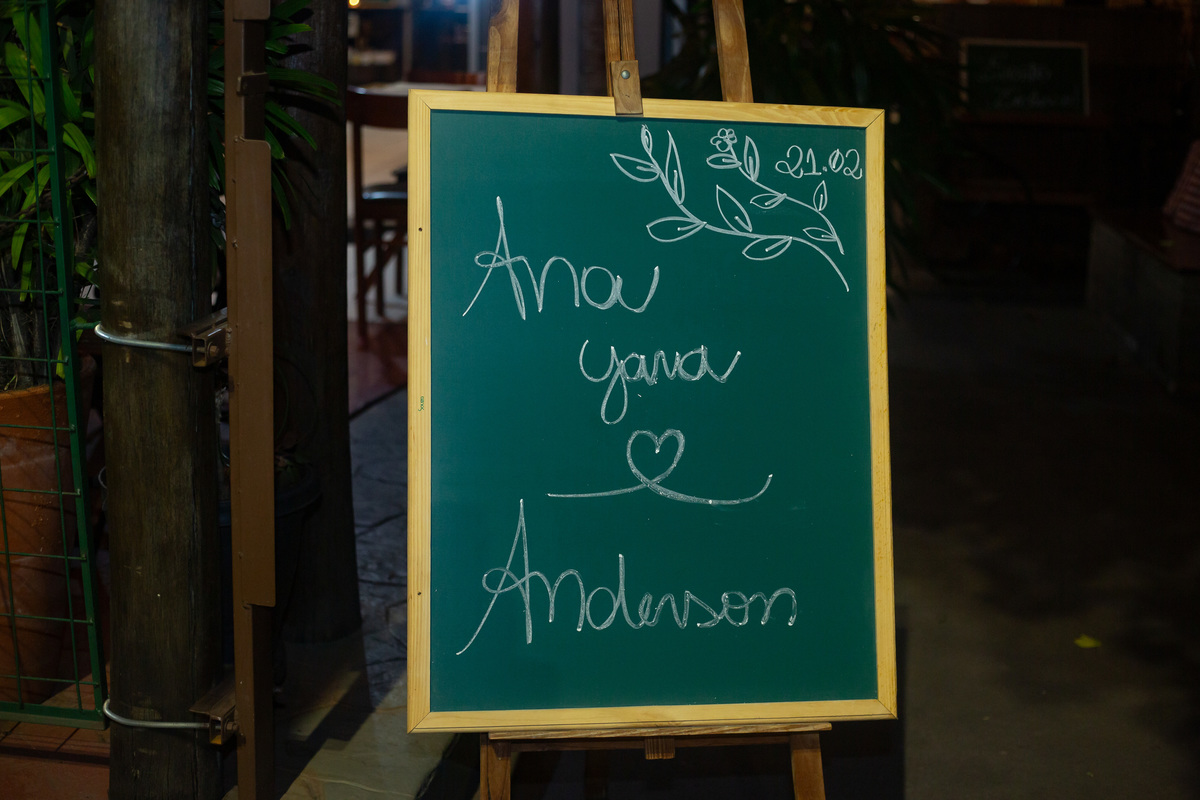 21.02
Ana
yara
Anderson